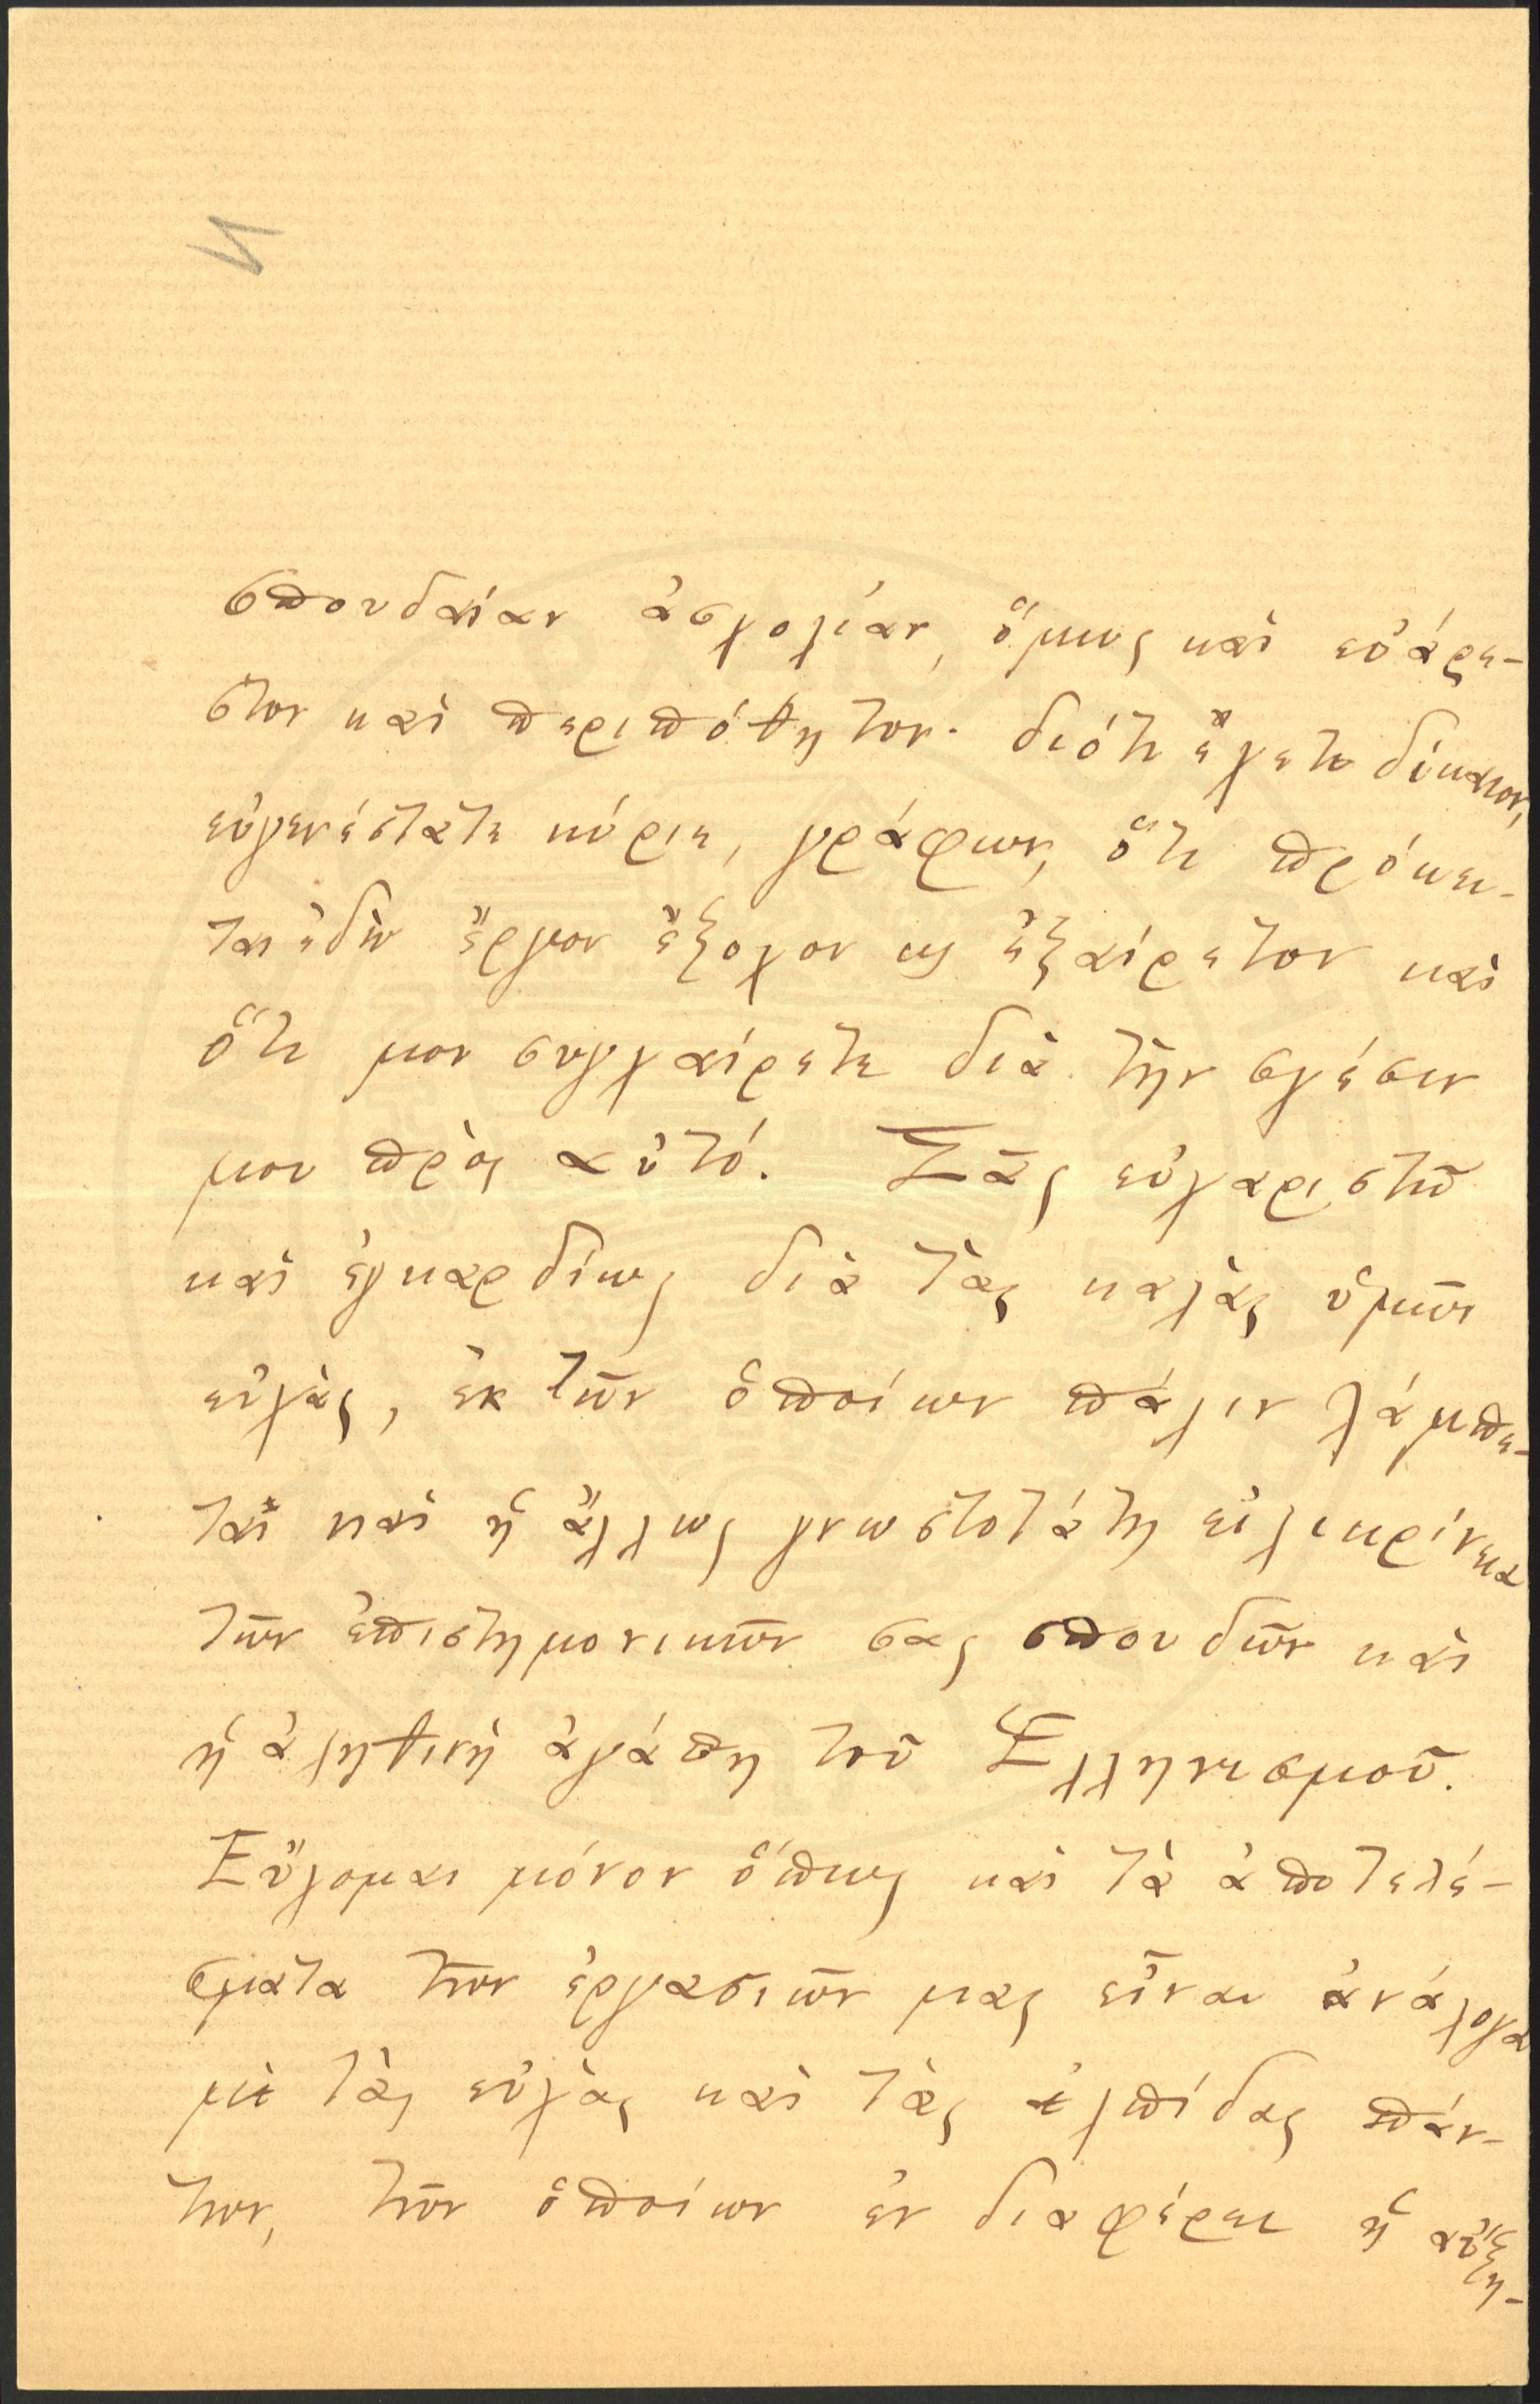 σπουδαίαν ἀσχολίαν, ὅμως καὶ εὐάρε-
στον καὶ περιπόθητον· διότι ἔχετε δίκαιον,
εὐγενέστατε κύριε, γράφων, ὅτι πρόκει-
ται ἐδῶ ἔργον ἔξοχον ὡς ἐξαίρετον καὶ
ὅτι μου συγχαίρετε διὰ τὴν σχέσιν
μου πρὸς αὐτό. Σᾶς εὐχαριστῶ
καὶ ἐγκαρδίως διὰ τὰς καλὰς ὑμῶν
εὐχάς, ἐκ τῶν ὁποίων πάλιν λάμπε-
ται καὶ ἡ ἄλλως γνωστοτάτη εἰλικρίνεια
τῶν ἐπιστημονικῶν σας σπουδῶν καὶ
ἡ ἀληθινὴ ἀγάπη τοῦ Ἑλληνισμοῦ.
Εὔχομαι μόνον ὅπως καὶ τὰ ἀποτελέ-
σματα τῶν ἐργασιῶν μας εἶναι ἀνάλογα
μὲ τὰς εὐχὰς καὶ τὰς ἐλπίδας πάν-
των, τῶν ὁποίων ἐνδιαφέρει ἡ αὔξη-